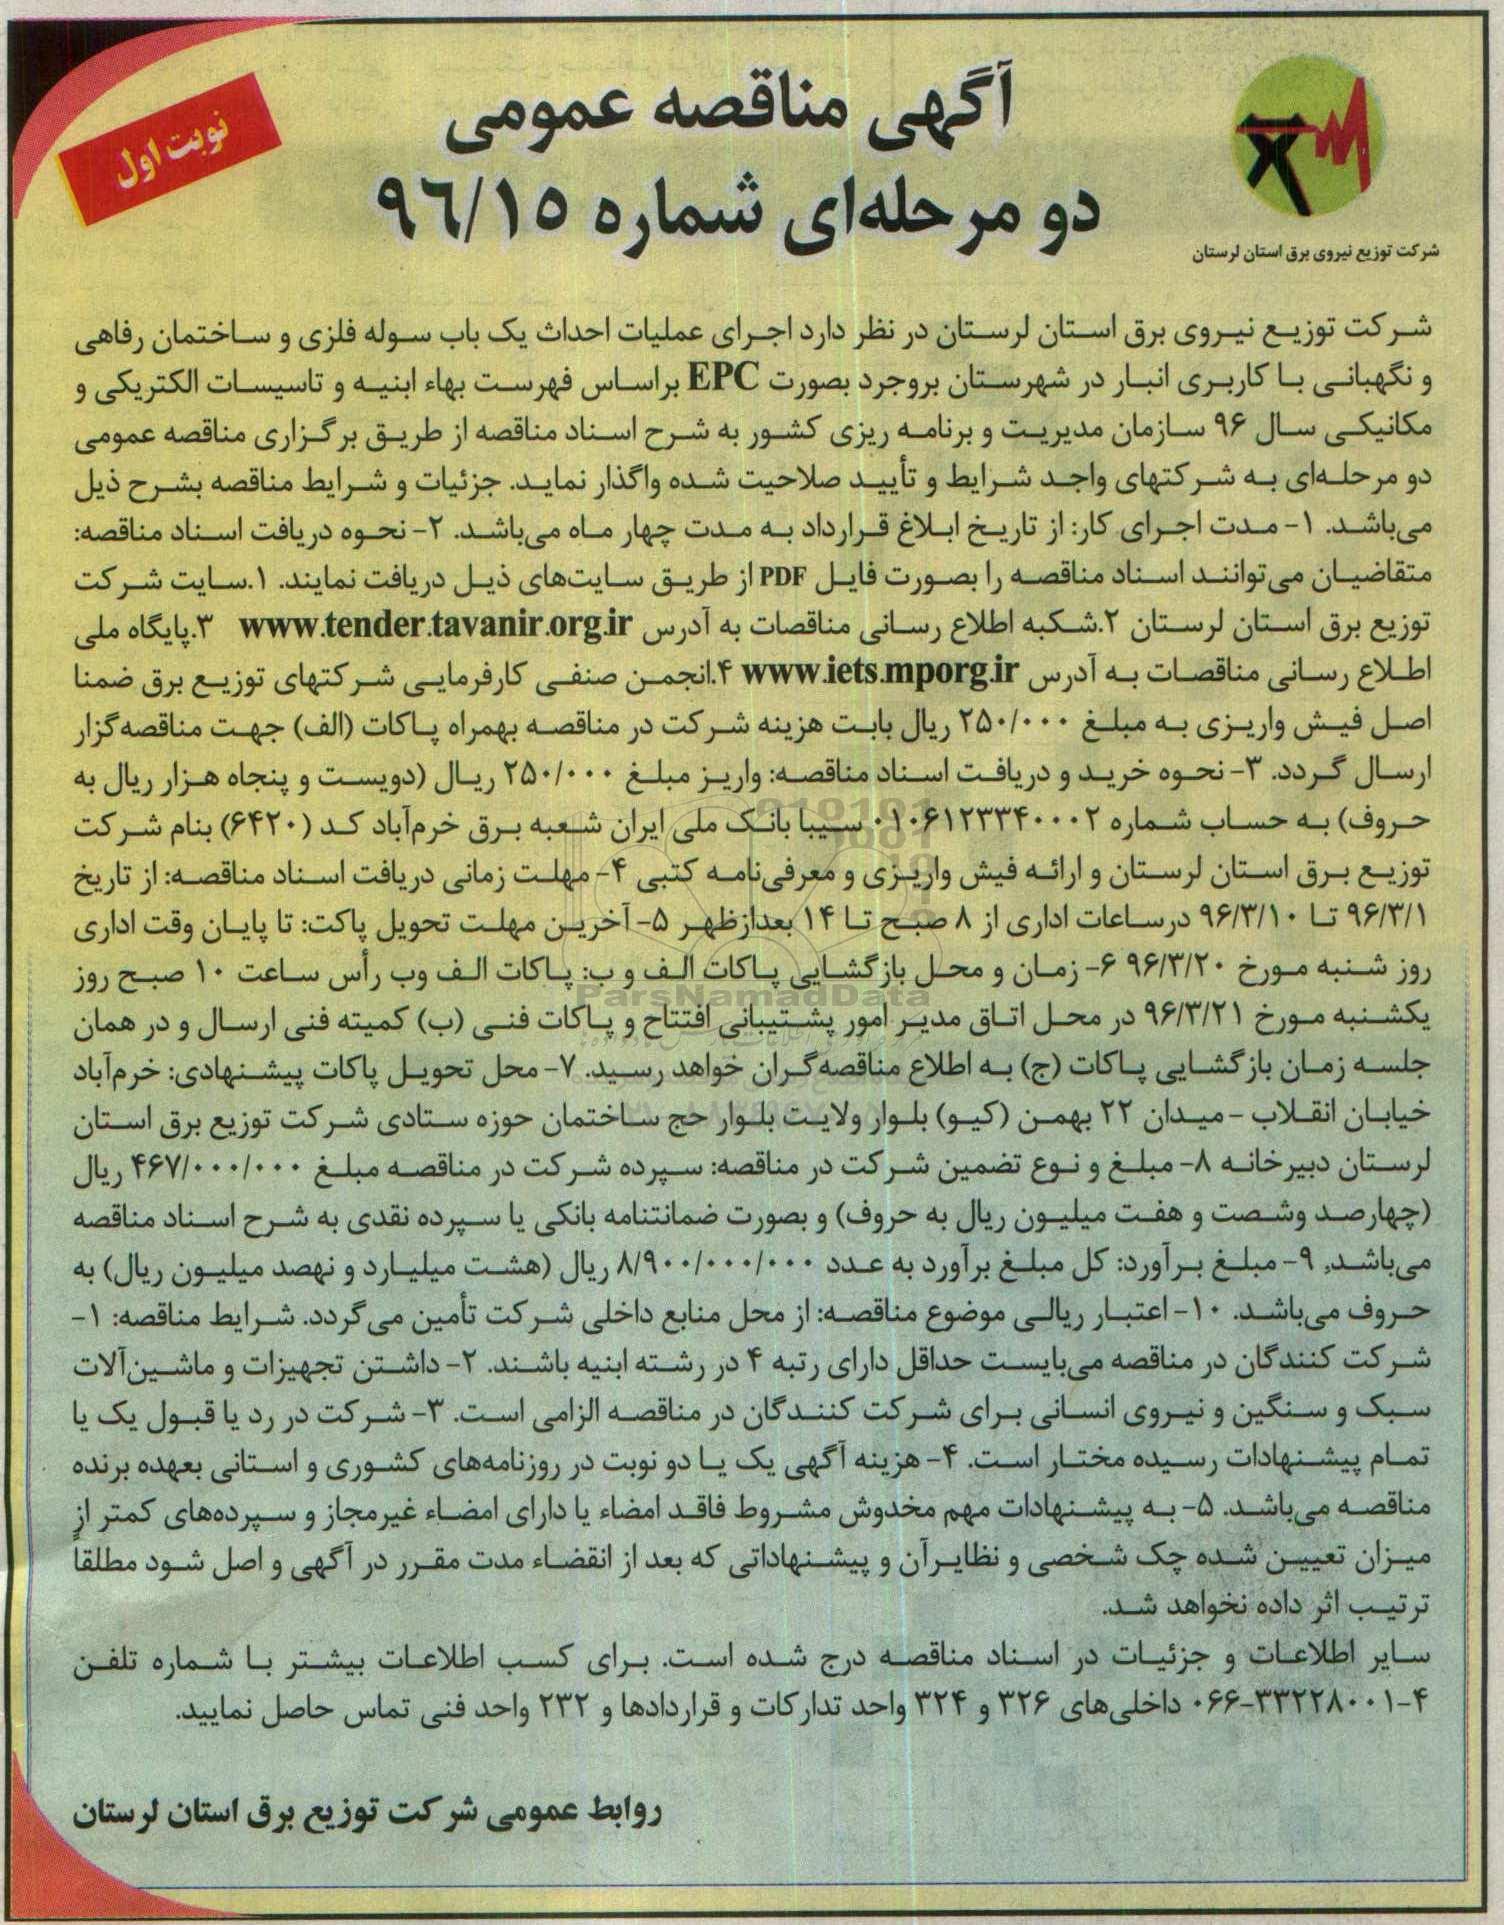 آگهی مناقصه عمومی
دو مرحله‌ای شماره ۹۶/۱۵
نوبت اول
شرکت توزیع نیروی برق استان لرستان
شرکت توزیع نیروی برق استان لرستان در نظر دارد اجرای عملیات احداث یک باب سوله فلزی و ساختمان رفاهی
و نگهبانی با کاربری انبار در شهرستان بروجرد بصورت EPC براساس فهرست بهاء ابنیه و تاسیسات الکتریکی و
مکانیکی سال ۹۶ سازمان مدیریت و برنامه ریزی کشور به شرح اسناد مناقصه از طریق برگزاری مناقصه عمومی
دو مرحله‌ای به شرکتهای واجد شرایط و تأیید صلاحیت شده واگذار نماید. جزئیات و شرایط مناقصه بشرح ذیل
می‌باشد. ۱- مدت اجرای کار: از تاریخ ابلاغ قرارداد به مدت چهار ماه می‌باشد. ۲- نحوه دریافت اسناد مناقصه:
متقاضیان می‌توانند اسناد مناقصه را بصورت فایل PDF از طریق سایت‌های ذیل دریافت نمایند. ۱.سایت شرکت
توزیع برق استان لرستان ۲.شکبه اطلاع رسانی مناقصات به آدرس www.tender.tavanir.org.ir ۳.پایگاه ملی
اطلاع رسانی مناقصات به آدرس www.iets.mporg.ir ۴.انجمن صنفی کارفرمایی شرکتهای توزیع برق ضمنا
اصل فیش واریزی به مبلغ ۲۵۰/۰۰۰ ریال بابت هزینه شرکت در مناقصه بهمراه پاکات (الف) جهت مناقصه‌گزار
ارسال گردد. ۳- نحوه خرید و دریافت اسناد مناقصه: واریز مبلغ ۲۵۰/۰۰۰ ریال (دویست و پنجاه هزار ریال به
حروف) به حساب شماره ۰۱۰۶۱۲۳۳۴۰۰۰۲ سیبا بانک ملی ایران شعبه برق خرم‌آباد کد (۶۴۲۰) بنام شرکت
توزیع برق استان لرستان و ارائه فیش واریزی و معرفی‌نامه کتبی ۴- مهلت زمانی دریافت اسناد مناقصه: از تاریخ
۹۶/۳/۱ تا ۹۶/۳/۱۰ درساعات اداری از ۸ صبح تا ۱۴ بعدازظهر ۵- آخرین مهلت تحویل پاکت: تا پایان وقت اداری
روز شنبه مورخ ۹۶/۳/۲۰ ۶- زمان و محل بازگشایی پاکات الف و ب: پاکات الف وب رأس ساعت ۱۰ صبح روز
یکشنبه مورخ ۹۶/۳/۲۱ در محل اتاق مدیر امور پشتیبانی افتتاح و پاکات فنی (ب) کمیته فنی ارسال و در همان
جلسه زمان بازگشایی پاکات (ج) به اطلاع مناقصه‌گران خواهد رسید. ۷- محل تحویل پاکات پیشنهادی: خرم‌آباد
خیابان انقلاب -میدان ۲۲ بهمن (کیو) بلوار ولایت بلوار حج ساختمان حوزه ستادی شرکت توزیع برق استان
لرستان دبیرخانه ۸- مبلغ و نوع تضمین شرکت در مناقصه: سپرده شرکت در مناقصه مبلغ ۴۶۷/۰۰۰/۰۰۰ ریال
(چهارصد وشصت و هفت میلیون ریال به حروف) و بصورت ضمانتنامه بانکی یا سپرده نقدی به شرح اسناد مناقصه
می‌باشد. ۹- مبلغ برآورد: کل مبلغ برآورد به عدد ۸/۹۰۰/۰۰۰/۰۰۰ ریال (هشت میلیارد و نهصد میلیون ریال) به
حروف می‌باشد. ۱۰- اعتبار ریالی موضوع مناقصه: از محل منابع داخلی شرکت تأمین می‌گردد. شرایط مناقصه: ۱-
شرکت کنندگان در مناقصه می‌بایست حداقل دارای رتبه ۴ در رشته ابنیه باشند. ۲- داشتن تجهیزات و ماشین‌آلات
سبک و سنگین و نیروی انسانی برای شرکت کنندگان در مناقصه الزامی است. ۳- شرکت در رد یا قبول یک یا
تمام پیشنهادات رسیده مختار است. ۴- هزینه آگهی یک یا دو نوبت در روزنامه‌های کشوری و استانی بعهده برنده
مناقصه می‌باشد. ۵- به پیشنهادات مهم مخدوش مشروط فاقد امضاء یا دارای امضاء غیرمجاز و سپرده‌های کمتر از
میزان تعیین شده چک شخصی و نظایرآن و پیشنهاداتی که بعد از انقضاء مدت مقرر در آگهی و اصل شود مطلقاً
ترتیب اثر داده نخواهد شد.
سایر اطلاعات و جزئیات در اسناد مناقصه درج شده است. برای کسب اطلاعات بیشتر با شماره تلفن
۰۶۶-۳۳۲۲۸۰۰۱-۴ داخلی‌های ۳۲۶ و ۳۲۴ واحد تدارکات و قراردادها و ۲۳۲ واحد فنی تماس حاصل نمایید.
روابط عمومی شرکت توزیع برق استان لرستان
ParsNamadData